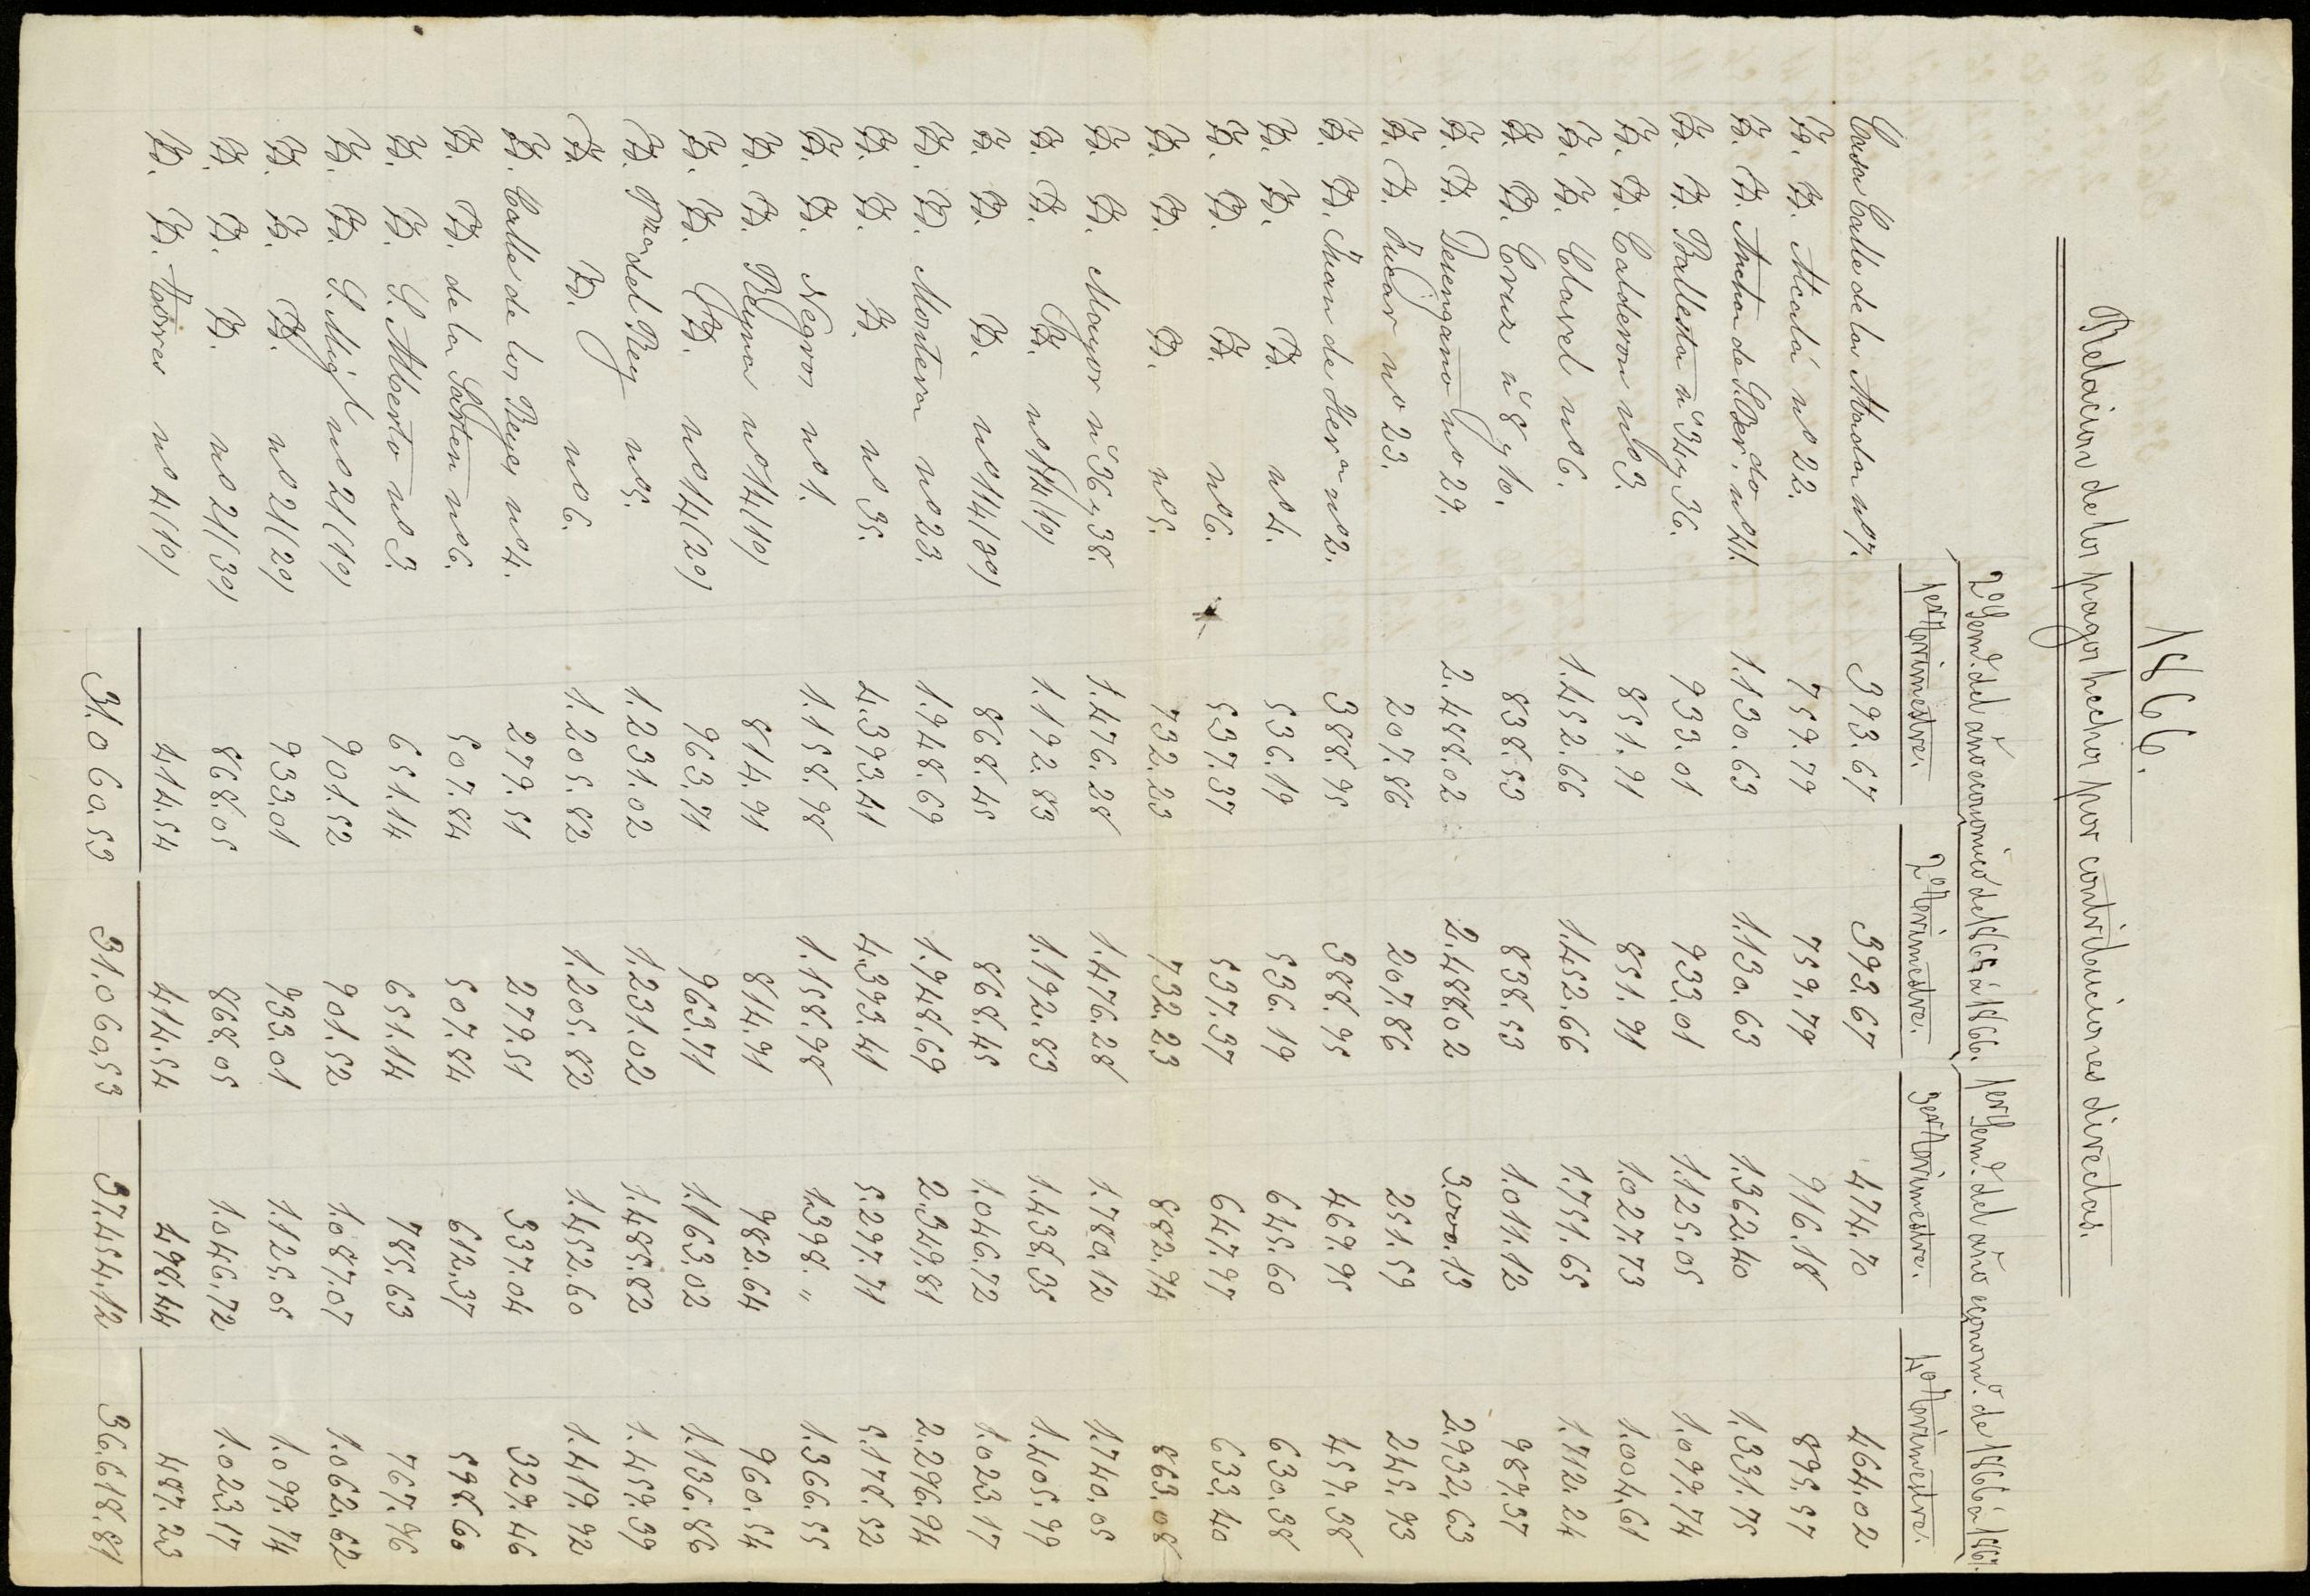 1866.
Relacion de los pagos hechos por contribuciones directas.
2º Sem.e del año económico de 1865 á 1866. 1er Sem.e del año econom.o de 1866 á 1867.
1er Trimestre. 2º Trimestre. 3er Trimestre. 4º Trimestre.
Casa Calle de la Abada nº 7. 393.67 393.67 474.70 464.02
Yd. Yd. Alcalá nº 22. 759.79 759.79 916.18 895.57
Yd. Yd. Ancha de S. Ber.do nº 41. 1.130.63 1.130.63 1.362.40 1.331.75
Yd. Yd. Ballesta nº 34 y 36. 933.01 933.01 1.125.05 1.099.74
Yd. Yd. Calderon nº 3. 851.91 851.91 1.027.73 1.004.61
Yd. Yd. Clavel nº 6. 1.452.66 1.452.66 1.751.65 1.712.24
Yd. Yd. Cruz nº 8 y 10. 838.53 838.53 1.011.12 989.37
Yd. Yd. Desengaño nº 29. 2.488.02 2.488.02 3.000.13 2.932.63
Yd. Yd. Fucar nº 23. 207.86 207.86 251.59 245.93
Yd. Yd. Juan de Her.a nº 2. 388.95 388.95 469.95 459.38
Yd. Yd. Yd. nº 4. 536.19 536.19 645.60 630.38
Yd. Yd. Yd. nº 6. 537.37 537.37 647.97 633.40
Yd. Yd. Yd. nº 5. 732.23 732.23 882.94 863.08
Yd. Yd. Mayor nº 36 y 38. 1.476.28 1.476.28 1.780.12 1.740.05
Yd. Yd. Yd. nº 114 (1º) 1.192.83 1.192.83 1.438.35 1.405.99
Yd. Yd. Yd. nº 114 (3º) 868.45 868.45 1.046.72 1.023.17
Yd. Yd. Montera nº 23. 1.948.69 1.948.69 2.349.81 2.296.94
Yd. Yd. Yd. nº 35. 4.393.41 4.393.41 5.297.71 5.178.52
Yd. Yd. Negros nº 1. 1.158.98 1.158.98 1.398. „ 1.366.55
Yd. Yd. Reyna nº 14 (1º) 814.91 814.91 982.64 960.54
Yd. Yd. Yd. nº 14 (2º) 963.71 963.71 1.163.02 1.136.86
Yd. Pza del Rey nº 5. 1.231.02 1.231.02 1.485.82 1.459.39
Yd. Yd. nº 6. 1.205.82 1.205.82 1.452.60 1.419.92
Yd. Calle de los Reyes nº 4. 279.51 279.51 337.04 329.46
Yd. Yd. de la Sarten nº 6. 507.84 507.84 612.37 598.60
Yd. Yd. S. Alberto nº 3. 651.14 651.14 785.63 767.96
Yd. Yd. S. Mig.l nº 21 (1º) 901.52 901.52 1.087.07 1.062.62
Yd. Yd. Yd. nº 21 (2º) 933.01 933.01 1.125.05 1.099.74
Yd. Yd. Yd. nº 21 (3º) 868.05 868.05 1.046.72 1.023.17
Yd. Yd. Torres nº 4 (1º) 414.54 414.54 498.44 487.23
31.060.53 31.060.53 37.454.12 36.618.81